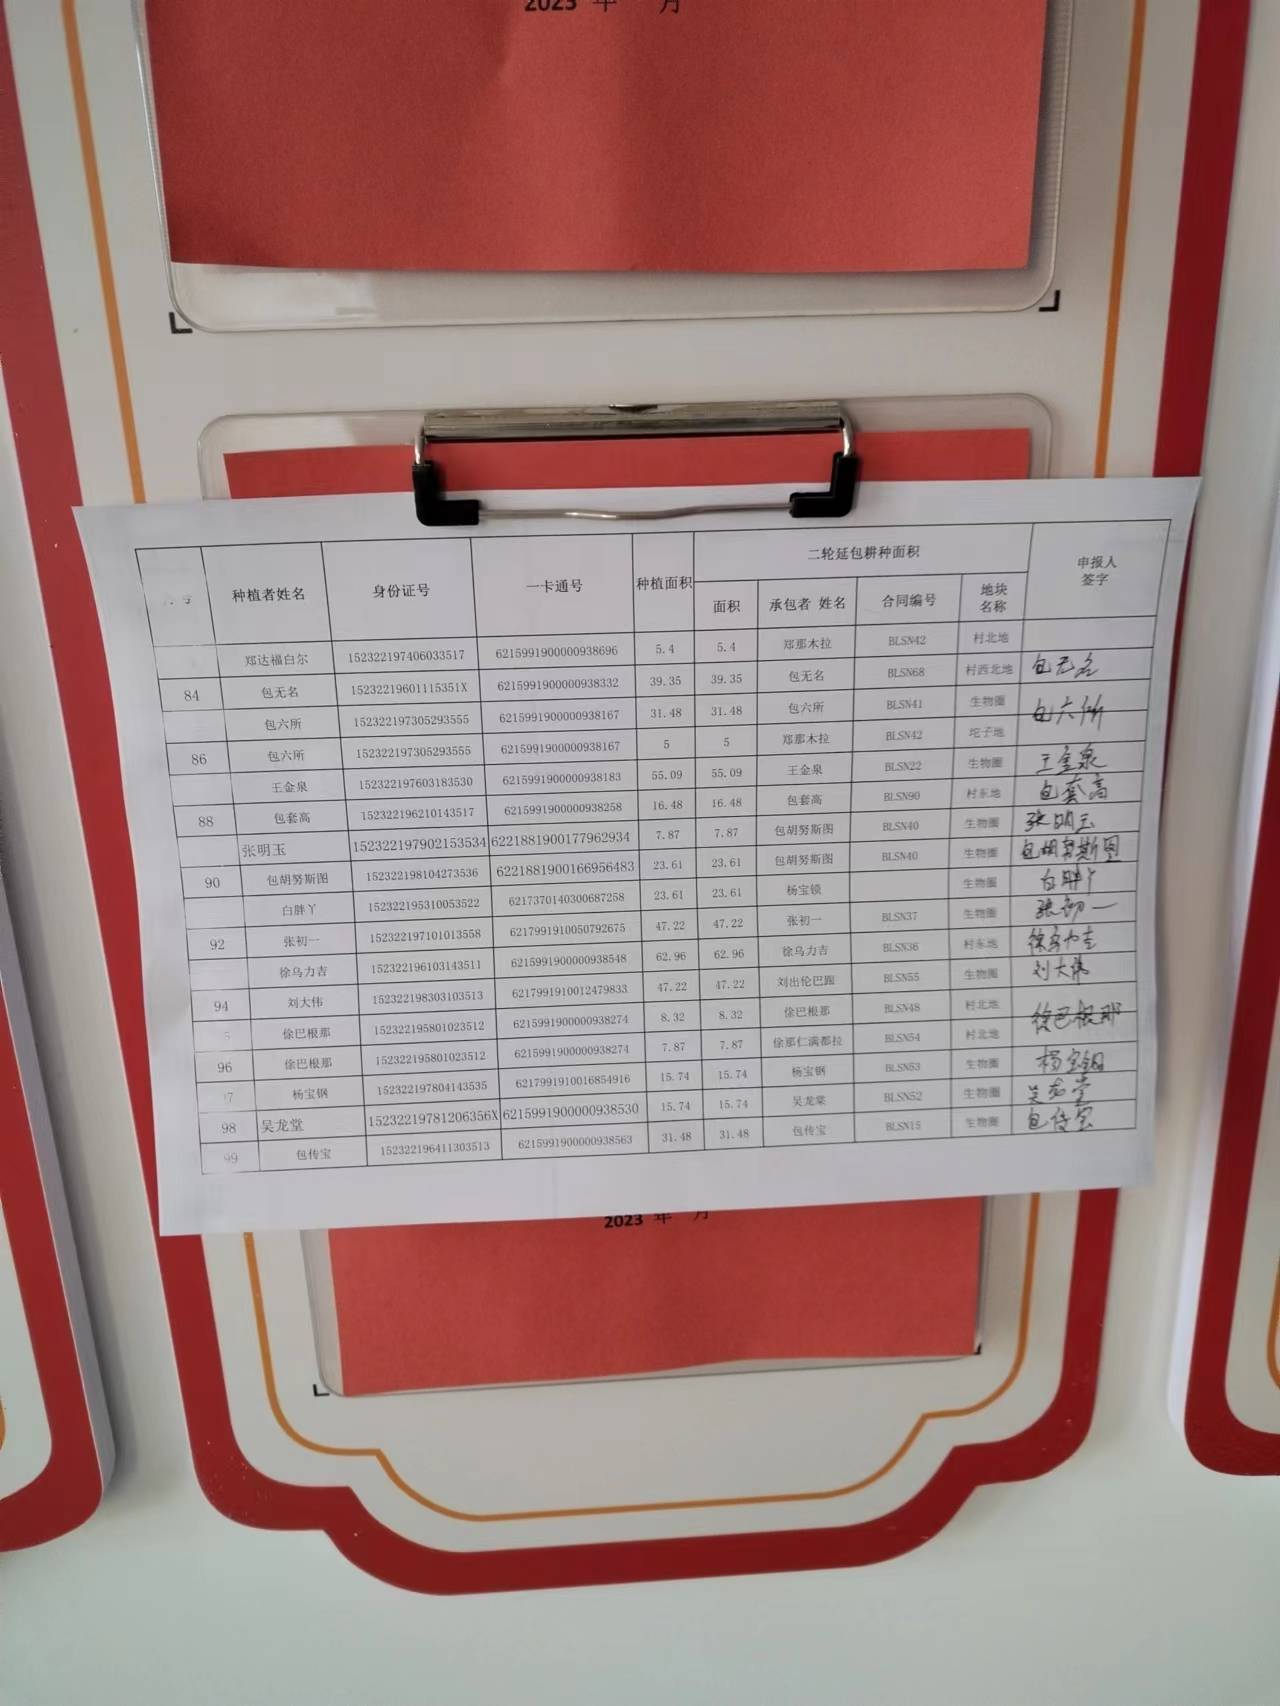 2023 年 月
序号 种植者姓名 身份证号 一卡通号 种植面积 二轮延包耕种面积 申报人签字
面积 承包者 姓名 合同编号 地块名称
郑达福白尔 152322197406033517 6215991900000938696 5.4 5.4 郑那木拉 BLSN42 村北地
84 包无名 15232219601115351X 6215991900000938332 39.35 39.35 包无名 BLSN68 村西北地 包无名
包六所 152322197305293555 6215991900000938167 31.48 31.48 包六所 BLSN41 生物圈 包六所
86 包六所 152322197305293555 6215991900000938167 5 5 郑那木拉 BLSN42 坨子地
王金泉 152322197603183530 6215991900000938183 55.09 55.09 王金泉 BLSN22 生物圈 王金泉
88 包套高 152322196210143517 6215991900000938258 16.48 16.48 包套高 BLSN90 村东地 包套高
张明玉 152322197902153534 6221881900177962934 7.87 7.87 包胡努斯图 BLSN40 生物圈 张明玉
90 包胡努斯图 152322198104273536 6221881900166956483 23.61 23.61 包胡努斯图 BLSN40 生物圈 包胡努斯图
白胖丫 152322195310053522 6217370140300687258 23.61 23.61 杨宝锁 生物圈 白胖丫
92 张初一 152322197101013558 6217991910050792675 47.22 47.22 张初一 BLSN37 生物圈 张初一
徐乌力吉 152322196103143511 6215991900000938548 62.96 62.96 徐乌力吉 BLSN36 村东地 徐乌力吉
94 刘大伟 152322198303103513 6217991910012479833 47.22 47.22 刘出伦巴跟 BLSN55 生物圈 刘大伟
5 徐巴根那 152322195801023512 6215991900000938274 8.32 8.32 徐巴根那 BLSN48 村北地 徐巴根那
96 徐巴根那 152322195801023512 6215991900000938274 7.87 7.87 徐那仁满都拉 BLSN54 村北地
97 杨宝钢 152322197804143535 6217991910016854916 15.74 15.74 杨宝钢 BLSN53 生物圈 杨宝钢
98 吴龙堂 15232219781206356X 6215991900000938530 15.74 15.74 吴龙棠 BLSN52 生物圈 吴龙堂
99 包传宝 152322196411303513 6215991900000938563 31.48 31.48 包传宝 BLSN15 生物圈 包传宝
2023 年 月